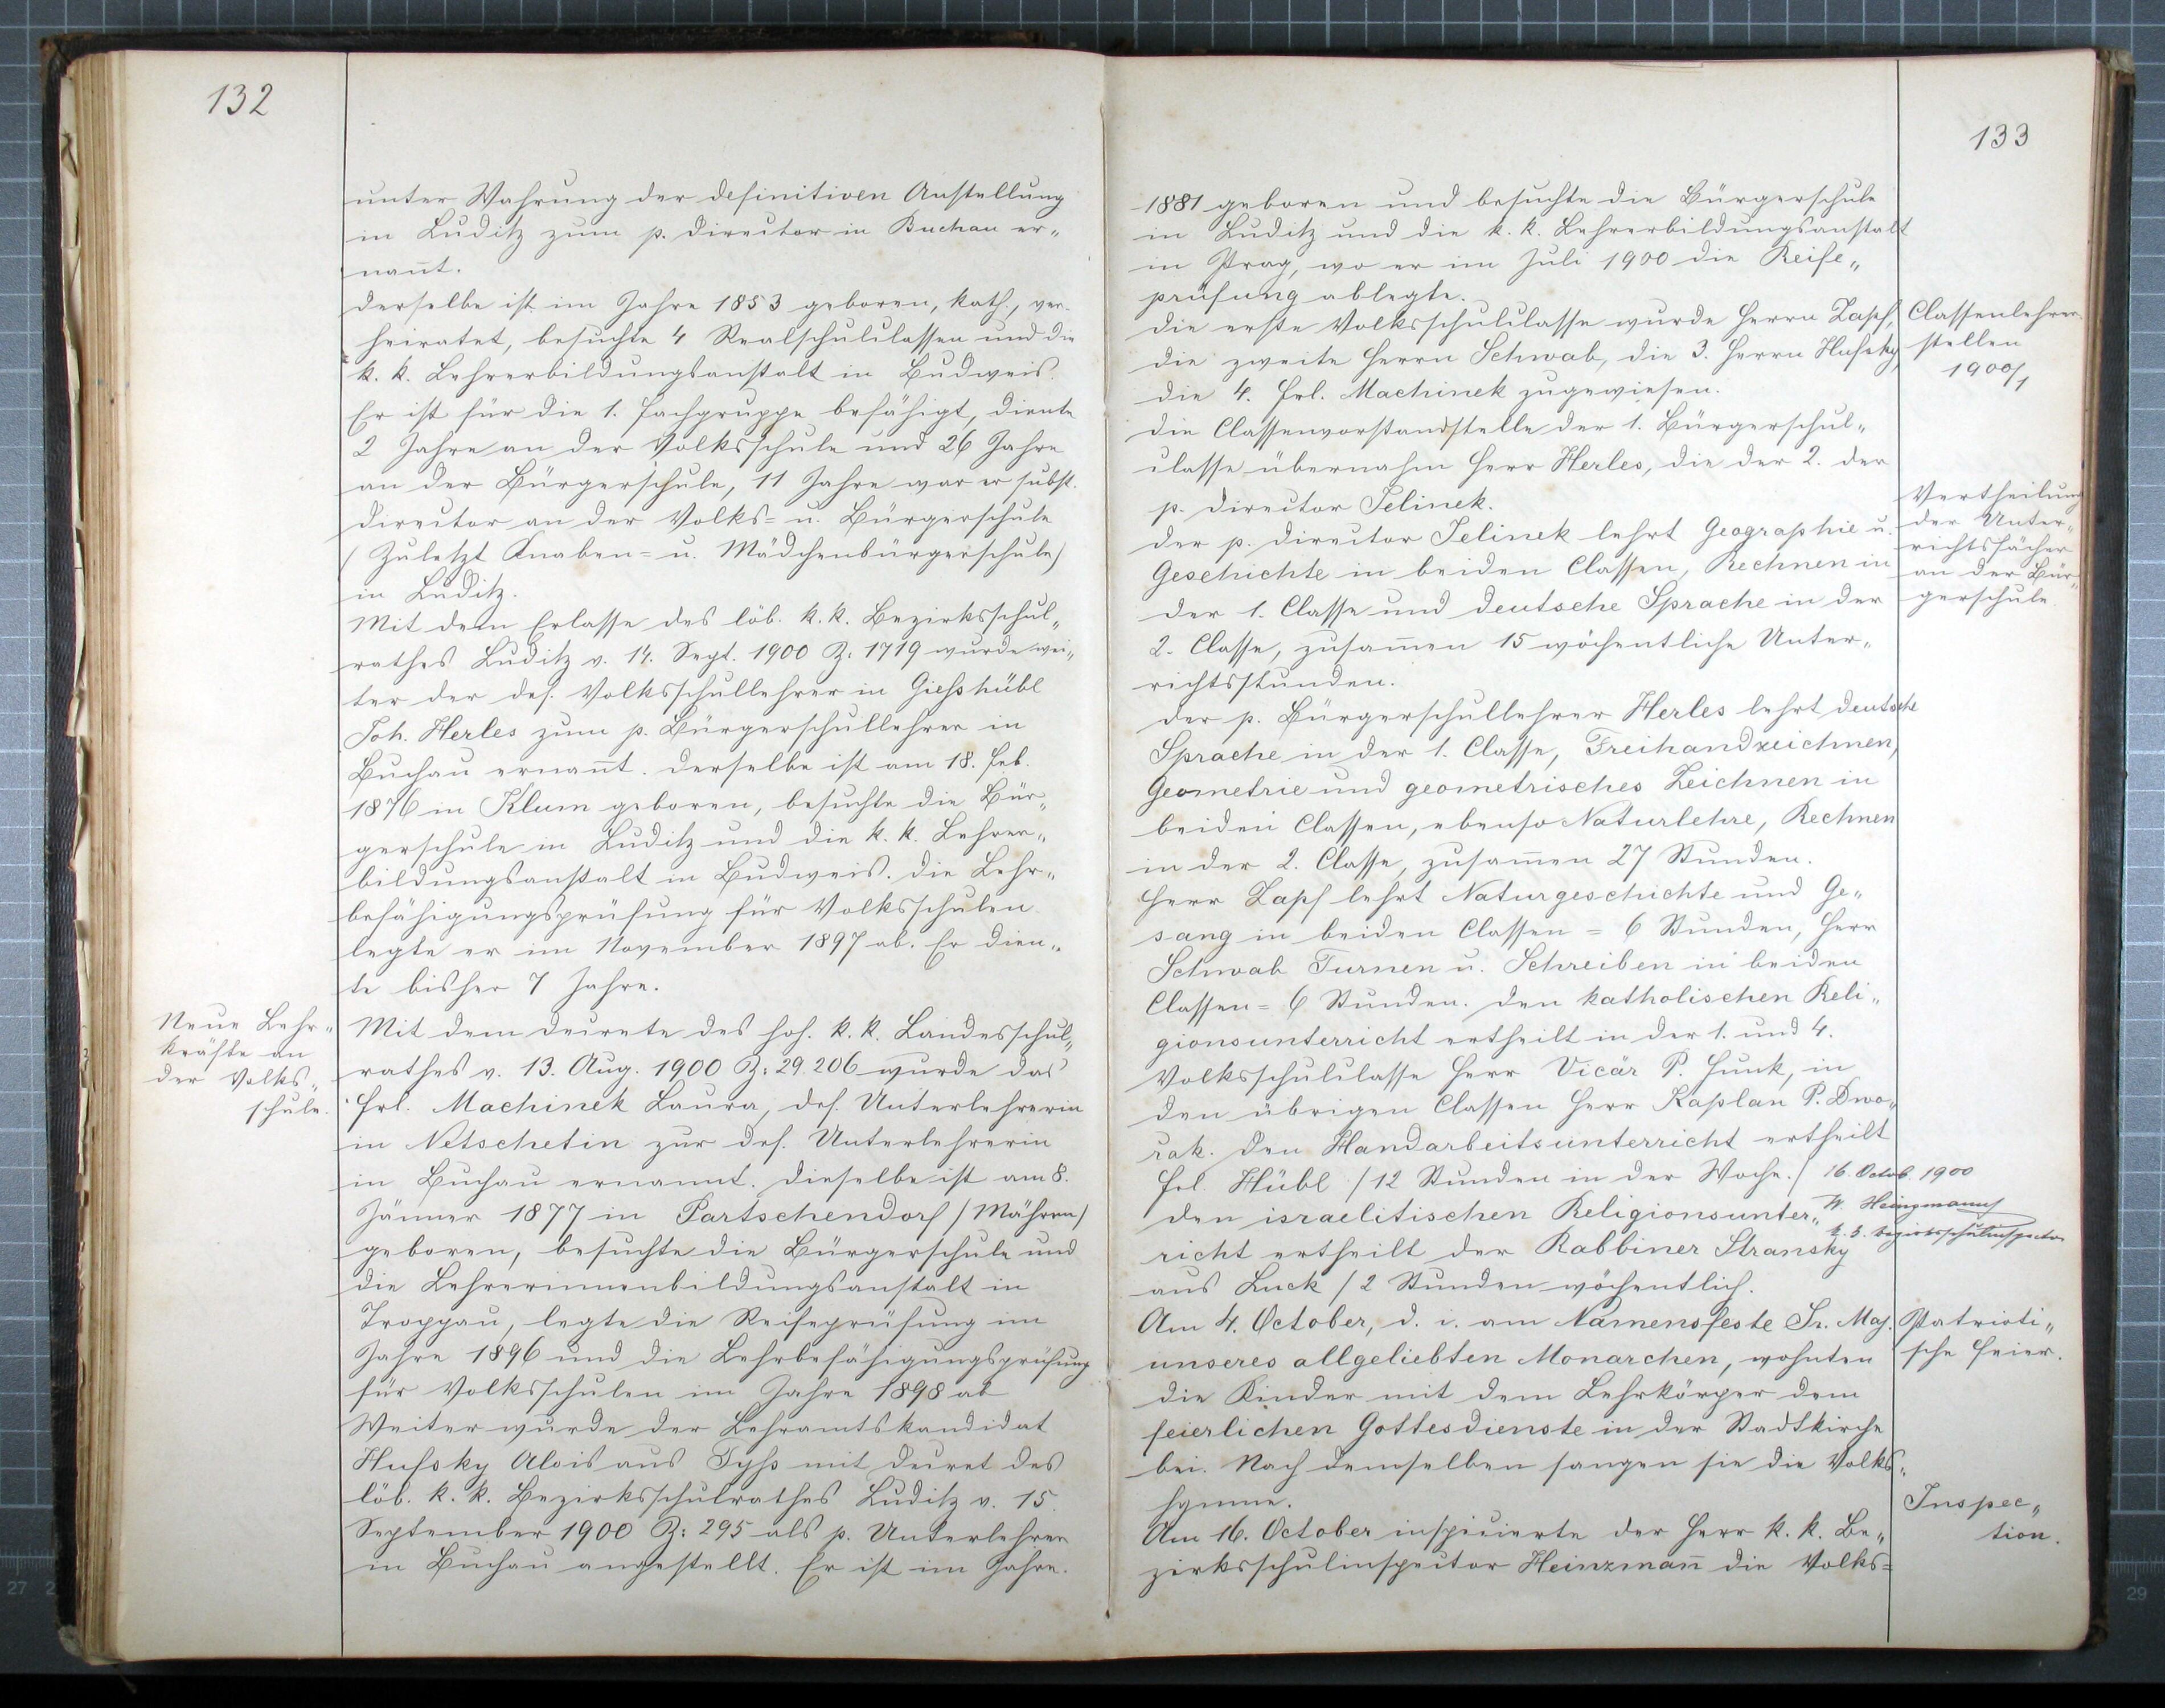 132
unter Wahrung der definitiven Anstellung
in Luditz zum p. Director in Buchau er„
nannt.
Derselbe ist im Jahre 1853 geboren, kath., ver-
heiratet, besuchte 4 Realschulclassen und die
k. k. Lehrerbildungsanstalt in Budweis.
Er ist für die 1. Fachgruppe befähigt, diente
2 Jahre an der Volksschule und 26 Jahre
an der Bürgerschule, 11 Jahre war er subst.
Director an der Volks= u. Bürgerschule
(Zuletzt Knaben= u. Mädchenbürgerschule)
in Luditz.
Mit dem Erlasse des löb. k. k. Bezirksschul„
rathes Luditz v. 14. Sept. 1900 Z: 1719 wurde wei„
ter der def. Volksschullehrer in Gießhübl
Joh. Herles zum p. Bürgerschullehrer in
Buchau ernannt. Derselbe ist am 18. Feb.
1876 in Klum geboren, besuchte die Bür„
gerschule in Luditz und die k. k. Lehrer„
bildungsanstalt in Budweis. Die Lehr„
befähigungsprüfung für Volksschulen
legte er im November 1897 ab. Er dien„
te bisher 7 Jahre.
Neue Lehr„
kräfte an
der Volks„
schule.
Mit dem Decrete des hoh. k. k. Landesschul„
rathes v. 13. Aug. 1900 Z: 29.206 wurde das
Frl. Machinek Laura, def. Unterlehrerin
in Netschetin zur def. Unterlehrerin
in Buchau ernannt. Dieselbe ist am 8.
Jänner 1877 in Partschendorf (Mähren)
geboren, besuchte die Bürgerschule und
die Lehrerinnenbildungsanstalt in
Troppau, legte die Reifeprüfung im
Jahre 1896 und die Lehrbefähigungsprüfung
für Volksschulen im Jahre 1898 ab
Weiter wurde der Lehramtskandidat
Hufsky Alois aus Tyß mit Decret des
löb. k. k. Bezirksschulrathes Luditz v. 15.
September 1900 Z: 295 als p. Unterlehrer
in Buchau angestellt. Er ist im Jahre.
133
1881 geboren und besuchte die Bürgerschule
in Luditz und die k. k. Lehrerbildungsanstalt
in Prag, wo er im Juli 1900 die Reife„
prüfung ablegte.
Classenlehrer
stellen
1900/1
Die erste Volksschulclasse wurde Herrn Zapf,
die zweite Herrn Schwab, die 3. Herrn Hufsky,
die 4. Frl. Machinek zugewiesen.
Die Classenvorstandstelle der 1. Bürgerschul„
classe übernahm Herr Herles, die der 2. der
p. Director Jelinek.
Vertheilung
der Unter„
richtsfächer
an der Bür„
gerschule
Der p. Director Jelinek lehrt Geographie u.
Geschichte in beiden Classen, Rechnen in
der 1. Classe und deutsche Sprache in der
2. Classe, zusammen 15 wöchentliche Unter„
richtsstunden.
Der p. Bürgerschullehrer Herles lehrt deutsche
Sprache in der 1. Classe, Freihandzeichnen,
Geometrie und geometrisches Zeichnen in
beiden Classen, ebenso Naturlehre, Rechnen
in der 2. Classe, zusammen 27 Stunden.
Herr Zapf lehrt Naturgeschichte und Ge„
sang in beiden Classen = 6 Stunden, Herr
Schwab Turnen u. Schreiben in beiden
Classen = 6 Stunden. Den katholischen Reli„
gionsunterricht ertheilt in der 1. und 4.
Volksschulclasse Herr Vicär P. Funk, in
den übrigen Classen Herr Kaplan P. Dwo„
rak. Den Handarbeitsunterricht ertheilt
Frl. Hübl /12 Stunden in der Woche./
16. Octob. 1900
W. Heinzmann
k. k. Bezirksschulinspector
Den israelitischen Religionsunter„
richt ertheilt der Rabbiner Stransky
aus Luck /2 Stunden wöchentlich.
Patrioti„
sche Feier.
Am 4. October, d. i. am Namensfeste Sr. Maj.
unseres allgeliebten Monarchen, wohnten
die Kinder mit dem Lehrkörper dem
feierlichen Gottesdienste in der Stadtkirche
bei. Nach demselben sangen sie die Volks„
hymne.
Inspec„
tion.
Am 16. October inspicierte der Herr k. k. Be„
zirksschulinspector Heinzmann die Volks=